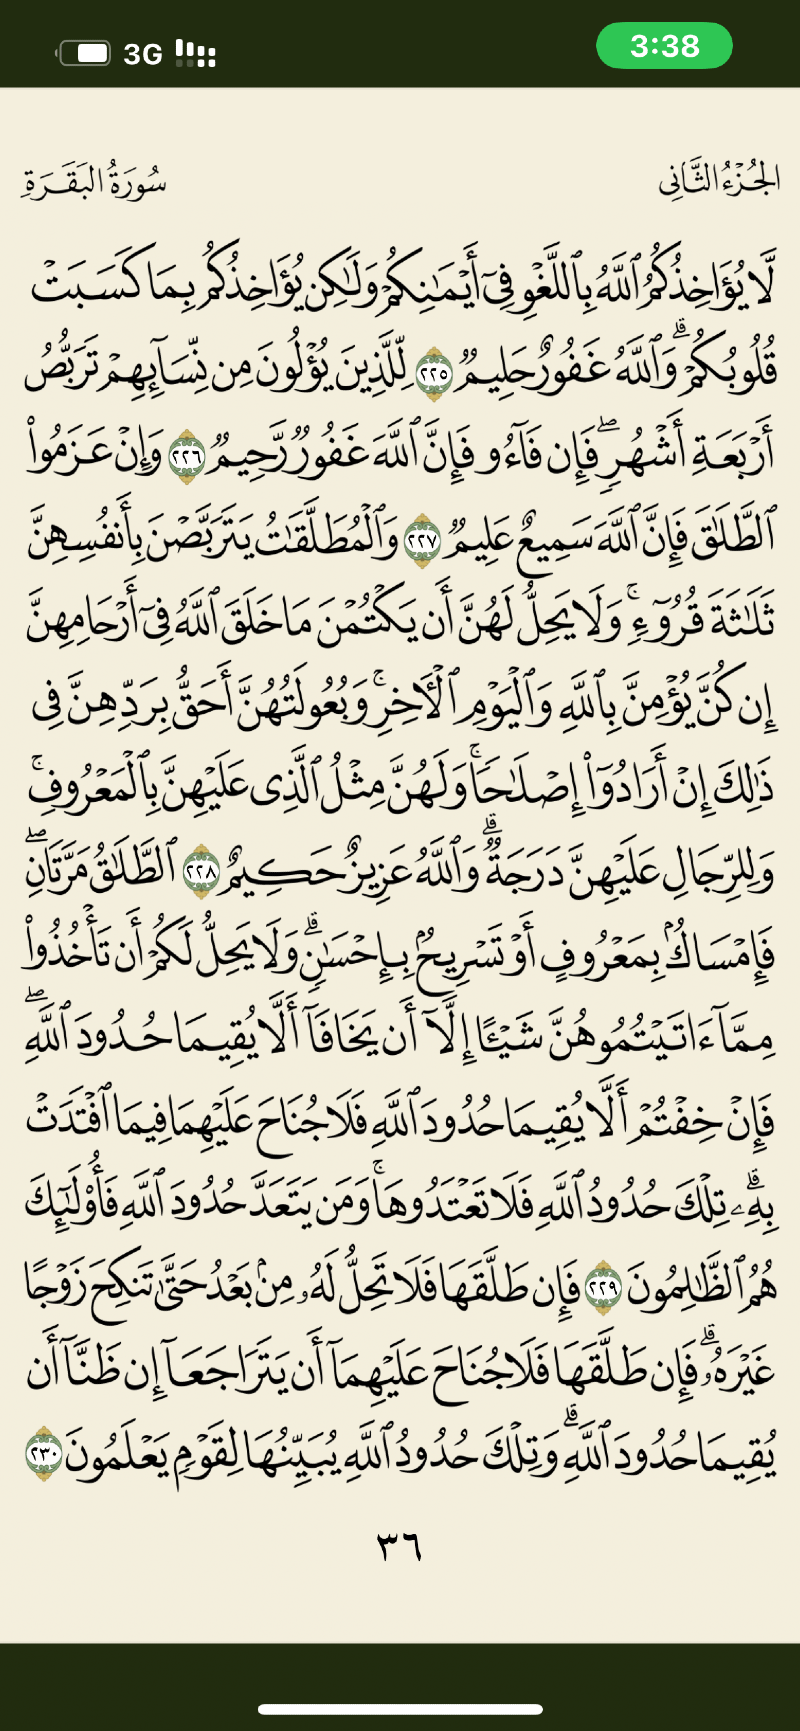 3G
3:38
الجُزْءُ الثَّانِى
سُورَةُ البَقَرَةِ
لَّا يُؤَاخِذُكُمُ ٱللَّهُ بِٱللَّغْوِ فِىٓ أَيْمَٰنِكُمْ وَلَٰكِن يُؤَاخِذُكُم بِمَا كَسَبَتْ
قُلُوبُكُمْ ۗ وَٱللَّهُ غَفُورٌ حَلِيمٌ ٢٢٥ لِّلَّذِينَ يُؤْلُونَ مِن نِّسَآئِهِمْ تَرَبُّصُ
أَرْبَعَةِ أَشْهُرٍ ۖ فَإِن فَآءُو فَإِنَّ ٱللَّهَ غَفُورٌ رَّحِيمٌ ٢٢٦ وَإِنْ عَزَمُوا۟
ٱلطَّلَٰقَ فَإِنَّ ٱللَّهَ سَمِيعٌ عَلِيمٌ ٢٢٧ وَٱلْمُطَلَّقَٰتُ يَتَرَبَّصْنَ بِأَنفُسِهِنَّ
ثَلَٰثَةَ قُرُوٓءٍ ۚ وَلَا يَحِلُّ لَهُنَّ أَن يَكْتُمْنَ مَا خَلَقَ ٱللَّهُ فِىٓ أَرْحَامِهِنَّ
إِن كُنَّ يُؤْمِنَّ بِٱللَّهِ وَٱلْيَوْمِ ٱلْءَاخِرِ ۚ وَبُعُولَتُهُنَّ أَحَقُّ بِرَدِّهِنَّ فِى
ذَٰلِكَ إِنْ أَرَادُوٓا۟ إِصْلَٰحًا ۚ وَلَهُنَّ مِثْلُ ٱلَّذِى عَلَيْهِنَّ بِٱلْمَعْرُوفِ ۚ
وَلِلرِّجَالِ عَلَيْهِنَّ دَرَجَةٌ ۗ وَٱللَّهُ عَزِيزٌ حَكِيمٌ ٢٢٨ ٱلطَّلَٰقُ مَرَّتَانِ ۖ
فَإِمْسَاكٌۢ بِمَعْرُوفٍ أَوْ تَسْرِيحٌۢ بِإِحْسَٰنٍ ۗ وَلَا يَحِلُّ لَكُمْ أَن تَأْخُذُوا۟
مِمَّآ ءَاتَيْتُمُوهُنَّ شَيْـًٔا إِلَّآ أَن يَخَافَآ أَلَّا يُقِيمَا حُدُودَ ٱللَّهِ ۖ
فَإِنْ خِفْتُمْ أَلَّا يُقِيمَا حُدُودَ ٱللَّهِ فَلَا جُنَاحَ عَلَيْهِمَا فِيمَا ٱفْتَدَتْ
بِهِۦ ۗ تِلْكَ حُدُودُ ٱللَّهِ فَلَا تَعْتَدُوهَا ۚ وَمَن يَتَعَدَّ حُدُودَ ٱللَّهِ فَأُو۟لَٰٓئِكَ
هُمُ ٱلظَّٰلِمُونَ ٢٢٩ فَإِن طَلَّقَهَا فَلَا تَحِلُّ لَهُۥ مِنۢ بَعْدُ حَتَّىٰ تَنكِحَ زَوْجًا
غَيْرَهُۥ ۗ فَإِن طَلَّقَهَا فَلَا جُنَاحَ عَلَيْهِمَآ أَن يَتَرَاجَعَآ إِن ظَنَّآ أَن
يُقِيمَا حُدُودَ ٱللَّهِ ۗ وَتِلْكَ حُدُودُ ٱللَّهِ يُبَيِّنُهَا لِقَوْمٍ يَعْلَمُونَ ٢٣٠
٣٦